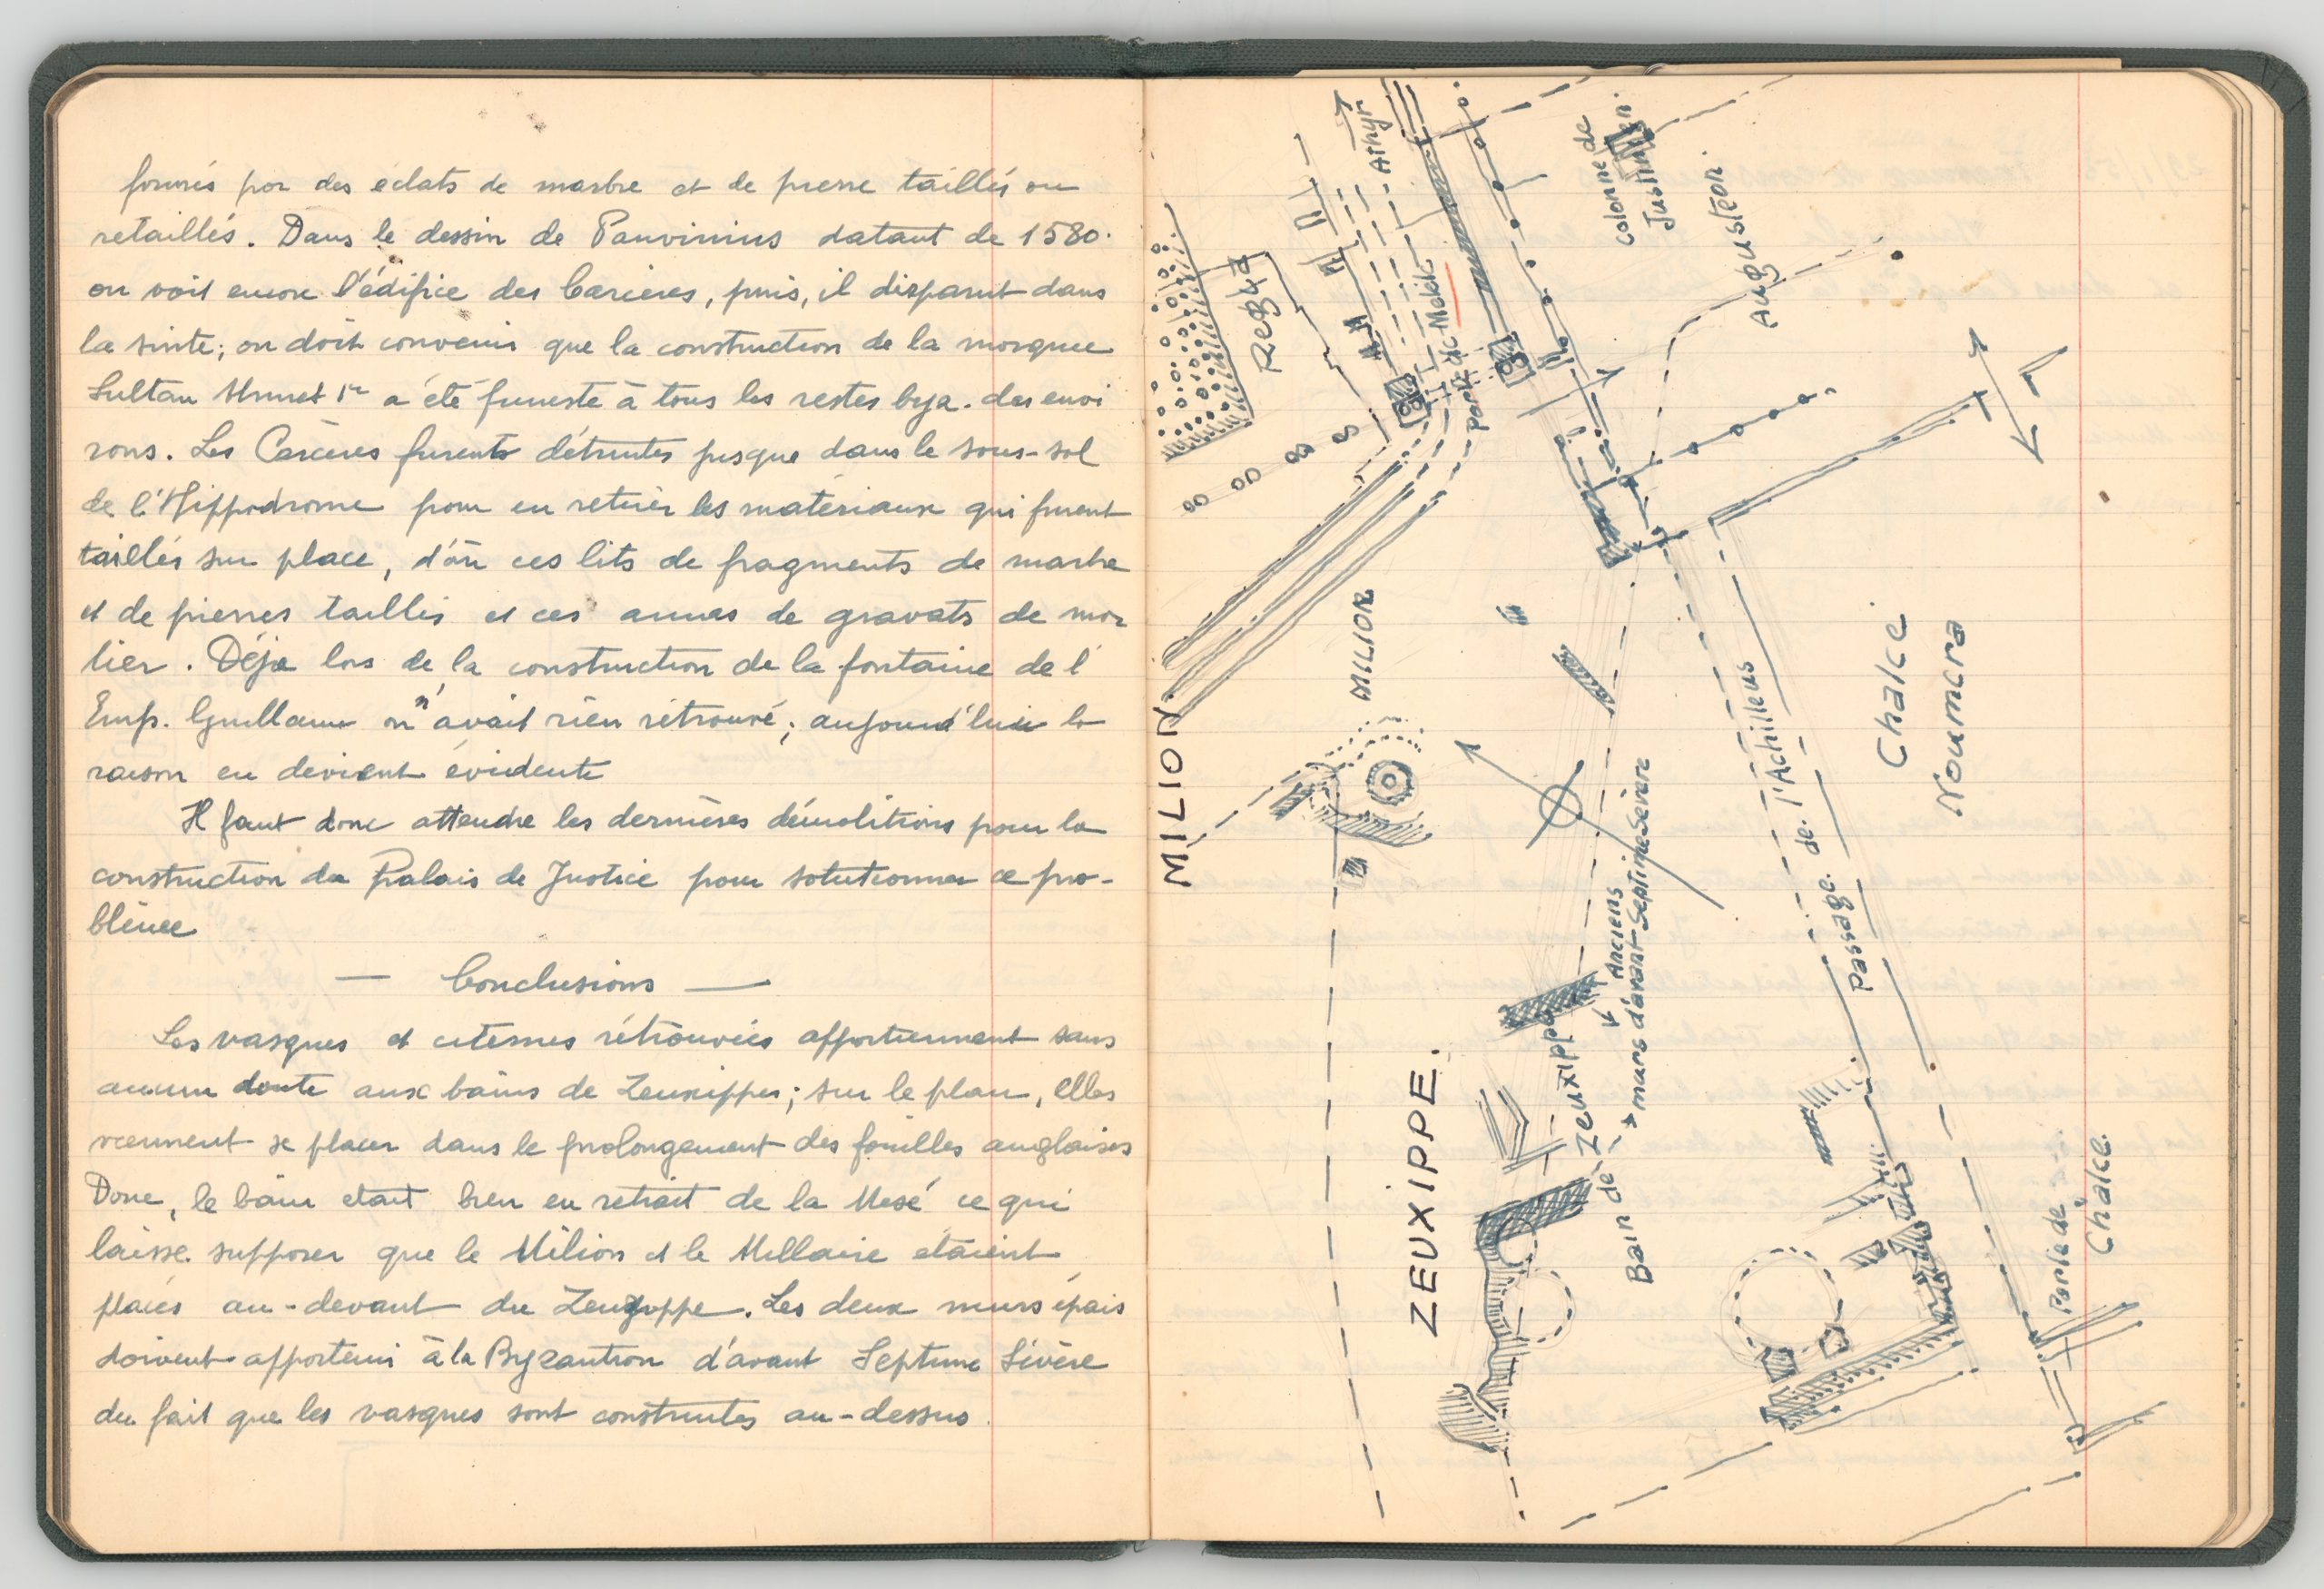 formés par des éclats de marbre et de pierre taillés ou
retaillés. Dans le dessin de Panvinius datant de 1580.
on voit encore l'édifice des Carcères, puis, il disparut dans
la suite; on doit convenir que la construction de la mosquée
Sultan Ahmet 1er a été funeste à tous les restes byz. des envi
rons. Les Carcères furents détruites jusque dans le sous-sol
de l'Hippodrome pour en retirer les matériaux qui furent
taillés sur place, d'où ces lits de fragments de marbre
et de pierres taillés et ces amas de gravats de mor
tier. Déja lors de la construction de la fontaine de l'
Emp. Guillaume on n'avait rien rétrouvé; aujourd'hui la
raison en devient évidente
Il faut donc attendre les dernières démolitions pour la
construction du Palais de Justice pour solutionner ce pro-
blème
— Conclusions —
Les vasques et citernes rétrouvées appartiennent sans
aucun doute aux bains de Zeuxippes; sur le plan, elles
viennent se placer dans le prolongement des fouilles anglaises
Donc, le bain etait bien en retrait de la Mesé ce qui
laisse supposer que le Milion et le Millaire etaient
placés au-devant du Zeuxippe. Les deux murs épais
doivent appartenir à la Byzantion d'avant Septime Sévère
du fait que les vasques sont construites au-dessus.
Athyr
Regia
Porte de Melété
colonne de
Justinien.
Augustéon.
MILION.
MILION
Chalce
Noumera
Passage. de. l'Achilleus
ZEUXIPPE.
Bain de Zeuxippe
Anciens
murs d'avant Septime Sévère
Porte de
Chalce.